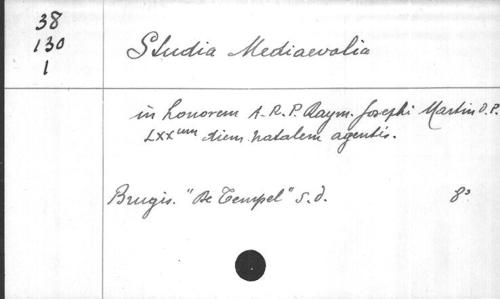 38
130
1
Studia Mediaevalia
in honorem A. R. P. Raym. Josephi Martin O.P.
LXXum diem natalem agentis.
Brugis. "De Tempel" s.d. 8°